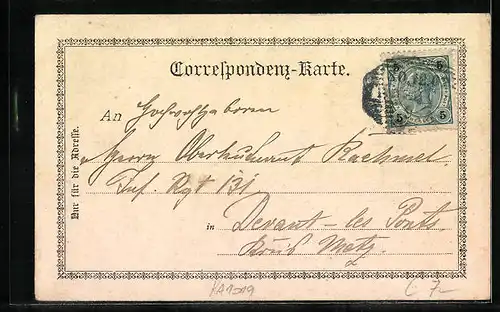 Correspondenz-Karte.
An Hochwohlgeboren
Herrn Oberleutnant Rachmel
Inf. Rgt 131
in Devant-les Ponts
Kreis Metz.
Nur für die Adresse.
5 5
5 5